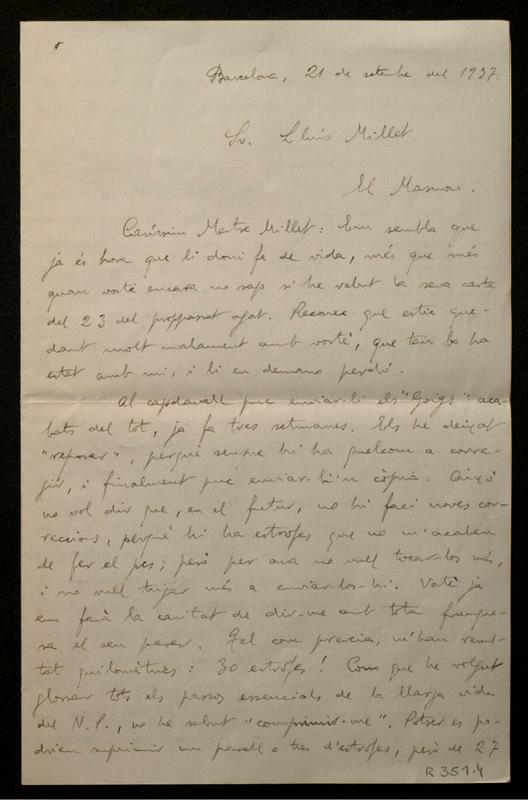 Barcelona, 21 de setembre del 1937.
Sr. Lluís Millet.
El Masnou.
Caríssim Mestre Millet: Em sembla que
ja és hora que li doni fe de vida, més que més
quan vostè encara no sap si he rebut la seva carta
del 23 del proppassat agost. Reconec que estic que-
dant molt malament amb vostè, que tan bo ha
estat amb mi, i li en demano perdó.
Al capdavall puc enviar-li els "Goigs" aca-
bats del tot, ja fa tres setmanes. Els he deixat
"reposar", perquè sempre hi ha quelcom a corre-
gir, i finalment puc enviar-li'n còpia. Això
no vol dir que, en el futur, no hi faci noves cor-
reccions, perquè hi ha estrofes que no m'acaben
de fer el pes; però per ara no vull tocar-los més,
i no vull trigar més a enviar-los-hi. Vostè ja
em farà la caritat de dir-me amb tota franque-
sa el seu parer. Tal com preveia, m'han resul-
tat quilomètrics: 30 estrofes! Com que he volgut
glossar tots els passos essencials de la llarga vida
del N. P., no he sabut "comprimir-me". Potser es po-
drien suprimir un parell o tres d'estrofes, però de 27
R 351.4